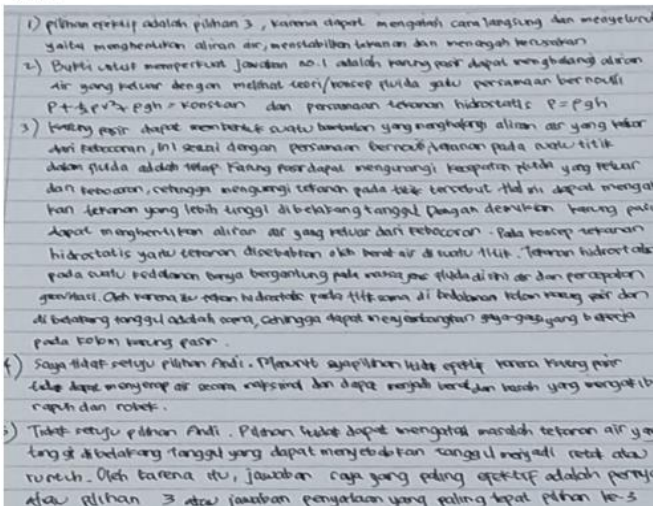 1) pilihan efektip adalah pilihan 3, karena dapat mengatasi cara langsung dan menyeluru
yaitu menghentikan aliran air, menstabilkan tekanan dan mencegah kerusakan
2) Bukti untuk memperkuat jawaban no.1 adalah karung pasir dapat menghalangi aliran
air yang keluar dengan melihat teori/konsep fluida yaitu persamaan bernoulli
P + ½ρv² + ρgh = konstan dan persamaan tekanan hidrostatis P = ρgh
3) Karung pasir dapat membentuk suatu yang menghalangi aliran air yang keluar
dari kebocoran, ini sesuai dengan persamaan Bernoulli, tekanan pada suatu titik
dalam fluida adalah tetap karung pasir dapat mengurangi kecepatan fluida yang keluar
dari kebocoran, sehingga mengurangi tekanan pada titik tersebut Hal ini dapat mengat
kan tekanan yang lebih tinggi dibelakang tanggul Dengan demikian karung pasi
dapat menghentikan aliran air yang keluar dari kebocoran. Pada konsep tekanan
hidrostatis yaitu tekanan disebabkan oleh berat air di suatu titik. Tekanan hidrostatis
pada suatu kedalaman hanya bergantung pada massa jenis fluida di sini air dan percepatan
gravitasi. Oleh karena itu tekan hidrostatis pada titik sama di kedalaman kolom karung pasir dan
di belakang tanggul adalah sama, sehingga dapat menyeimbangkan gaya-gaya yang bekerja
pada kolom karung pasir.
4) Saya tidak setuju pilihan Andi. Menurut saya pilihan tidak efektip karena karung pasir
tidak dapat menyerap air secara maksimal dan dapat menjadi berat dan basah yang mengakib
rapuh dan robek.
) Tidak setuju pilihan Andi. Pilihan tidak dapat mengatasi masalah tekanan air ya
tinggi dibelakang tanggul yang dapat menyebabkan tanggul menjadi retak atau
runtuh. Oleh karena itu, jawaban saya yang paling efektif adalah pernya
atau pilihan 3 atau jawaban pernyataan yang paling tepat pilihan ke-3